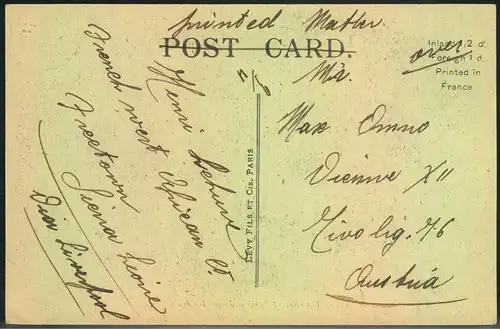 printed Matter
POST CARD.
over
Inland ½ d.
Foreign 1 d.
Printed in
France
Henri
French west African Co
Freetown
Sierra Leone
Via Liverpool
LÉVY FILS ET CIE, PARIS
Mr.
Max Omno
Vienne XII
Tivolig. 76
Austria